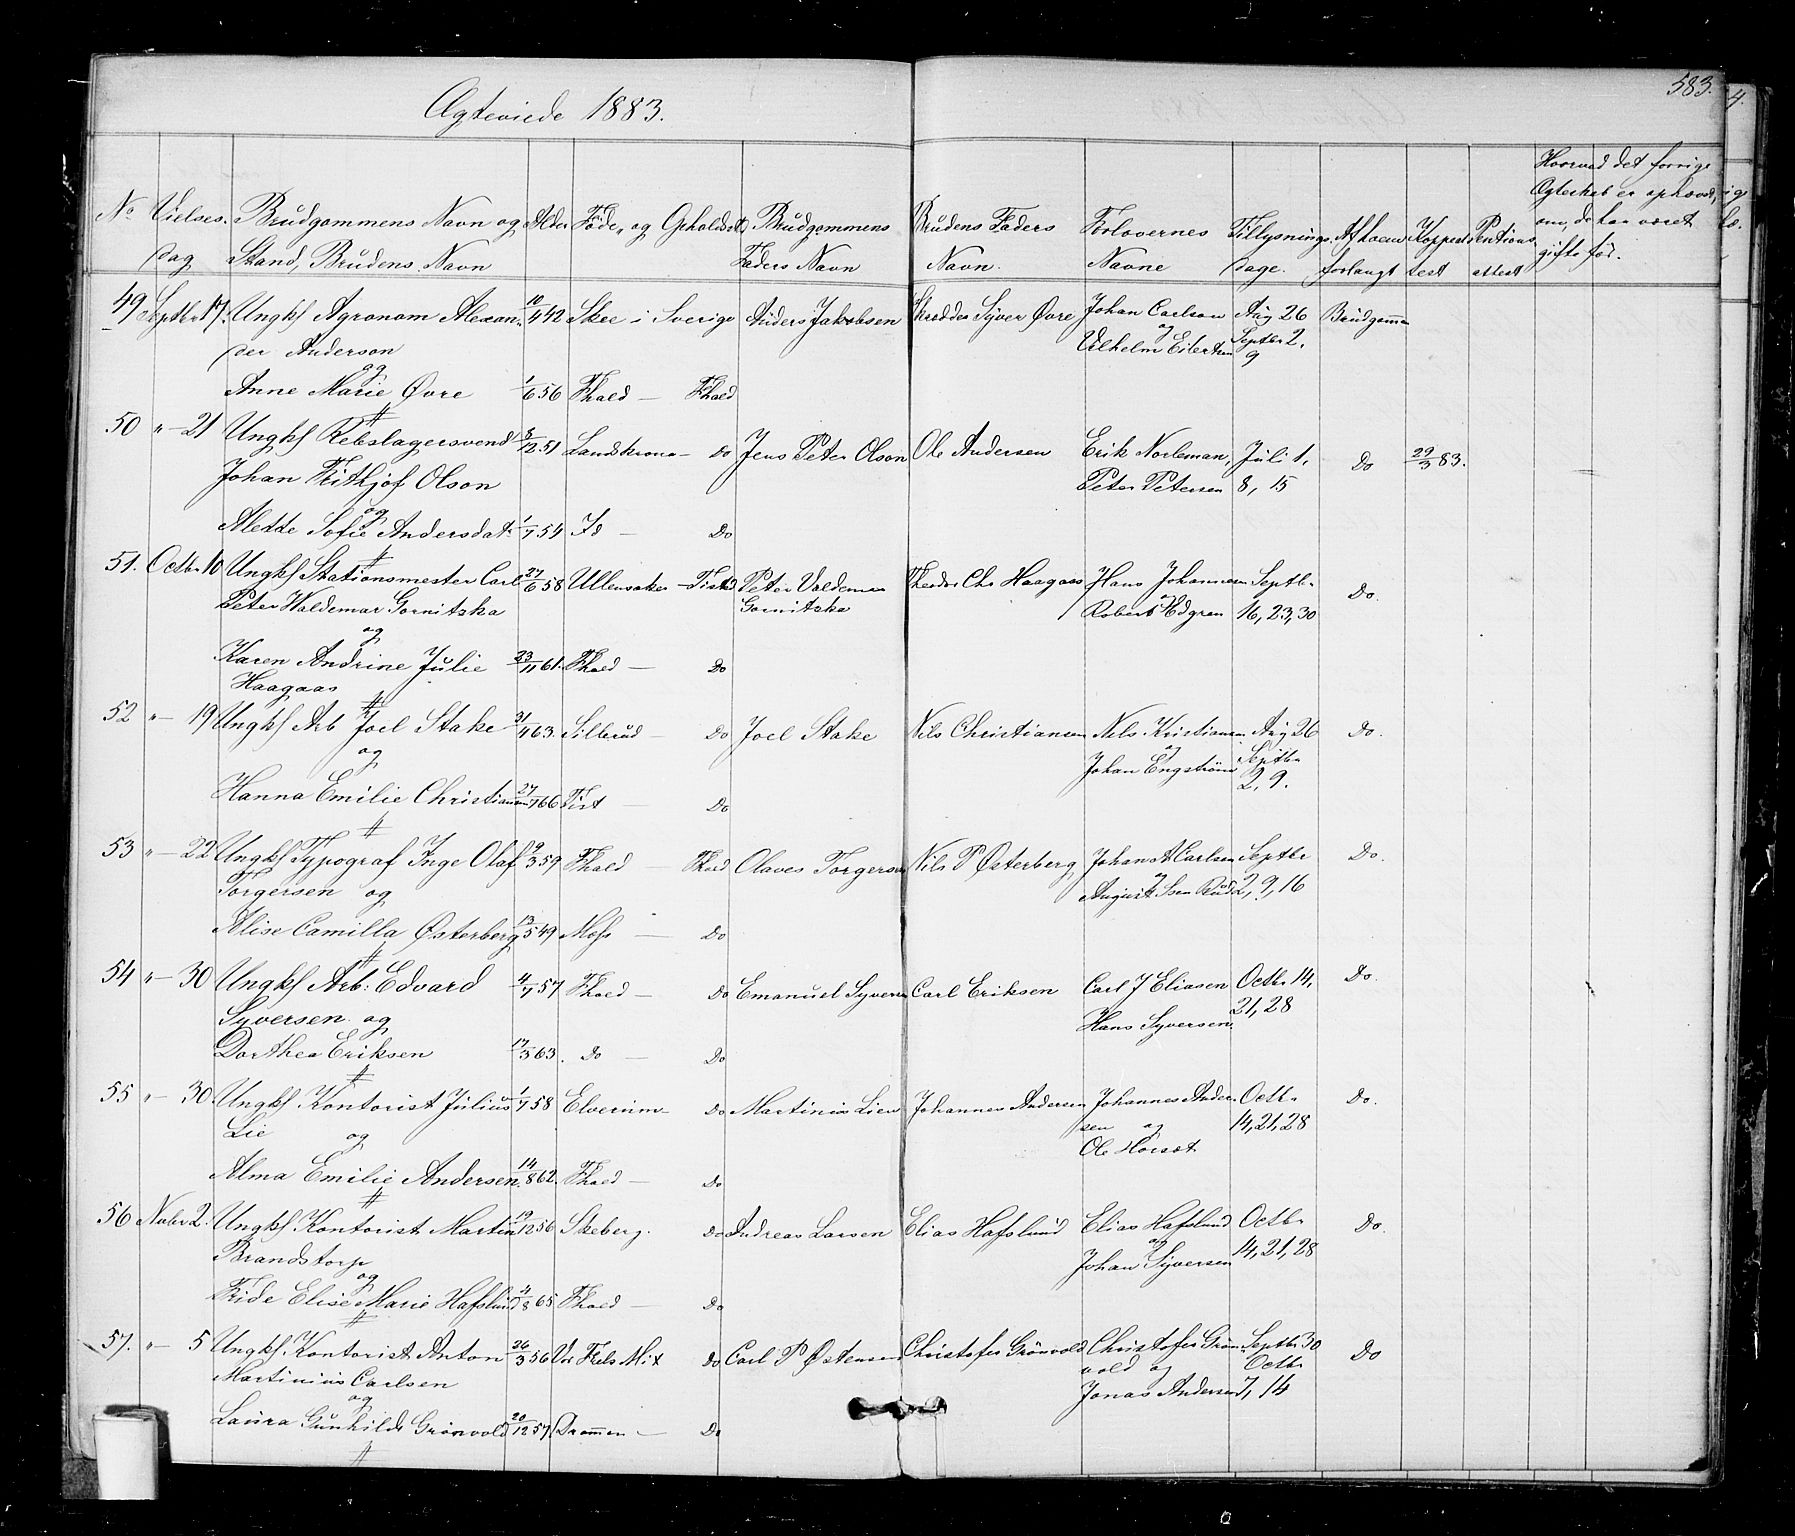 583.
4.
Ægteviede 1883.
No Vielses- dag Brudgommens Navn og Stand, Brudens Navn Alder Føde- og Opholdsst. Brudgommens Faders Navn Brudens Faders Navn. Forlovernes Navne Tillysnings- dage. Af hvem forlangt Koppeat- test attest Hvorved det forrige Ægteskab er ophævet, om de har været gifte før.
49 Septbr 17. Ungkl Agronom Alexan- 10/4 42 Skee i Sverige Anders Jakobsen Skredder Syver Øvre Johan Carlson Aug 26 Brudgomme
der Anderson og Vilhelm Eilertsen Septbr 2.
og 9
Anne Marie Øvre 1/6 56 Fhald — Fhald
50 " — 21 Ungkl Rebslagersvend 8/12 51 Landskrona — Do Jens Peter Olson Ole Andersen Erik Norleman, Juli 1, Do 29/3 83.
Johan Frithjof Olson Peter Petersen 8, 15
og
Alette Sofie Andersdat. 1/7 54 Id — Do
51. Octbr 10 Ungkl Stationsmester Carl 27/6 58 Ullensaker — Tisted Peter Valdemar Theodor Chr Haagaas Hans Johannesen Septbr Do.
Peter Waldemar Gornitzka Gornitzka og Robert Edgren 16, 23, 30
og
Karen Andrine Julie 23/11 61. Fhald — Do
Haagaas
52 " — 19 Ungkl Arb Joel Stake 31/4 63. Silbrud — Do Joel Stake Nils Christiansen Nils Kristiansen Aug 26 Do.
og og Septbr
Johan Engstrøm 2, 9.
Hanna Emilie Christiansen 27/7 66 Tist — Do
53 " — 22 Ungkl Typograf Inge Olaf 9/3 59 Fhald — Fhald Olaves Torgersen Nils P Østerberg Johan A Carlsen Septbr Do.
Torgersen og og August Ssen Rud 2, 9, 16
Alise Camilla Østerberg 13/5 49 Moss — Do
54 " — 30 Ungkl Arb: Edvard 4/7 57 Fhald — Do Emanuel Syversen Carl Eriksen Carl J Eliasen Octbr 14, Do.
Syversen og Hans Syversen 21, 28
Dorthea Eriksen 17/3 63. Do — Do
55 " — 30. Ungkl. Kontorist Julius 1/7 58 Elverum — Do Martinius Lien Johannes Andersen Johannes Ander- Octbr Do.
Lie og sen og 14, 21, 28
Ole
Alma Emilie Andersen. 14/8 62. Fhald — Do
56 Novbr 2. Ungkl. Kontorist Martin 19/12 56 Skeberg. Do Andreas Larsen Elias Hafslund Elias Hafslund Octbr Do.
Brandstorp og 14, 21, 28
og Johan Syversen
Fride Elise Marie Hafslund 4/8 65 Fhald — Do
57. " — 5 Ungkl. Kontorist Anton 26/3 56 Vor Frels Mt Do Carl P Østensen Christofer Grønvold Christofer Grøn- Septbr 30 Do
Martinius Carlsen vold og Octbr
og Jonas Andersen 7, 14
Laura Gunhilde Grønvold 20/12 57. Drammen — Do